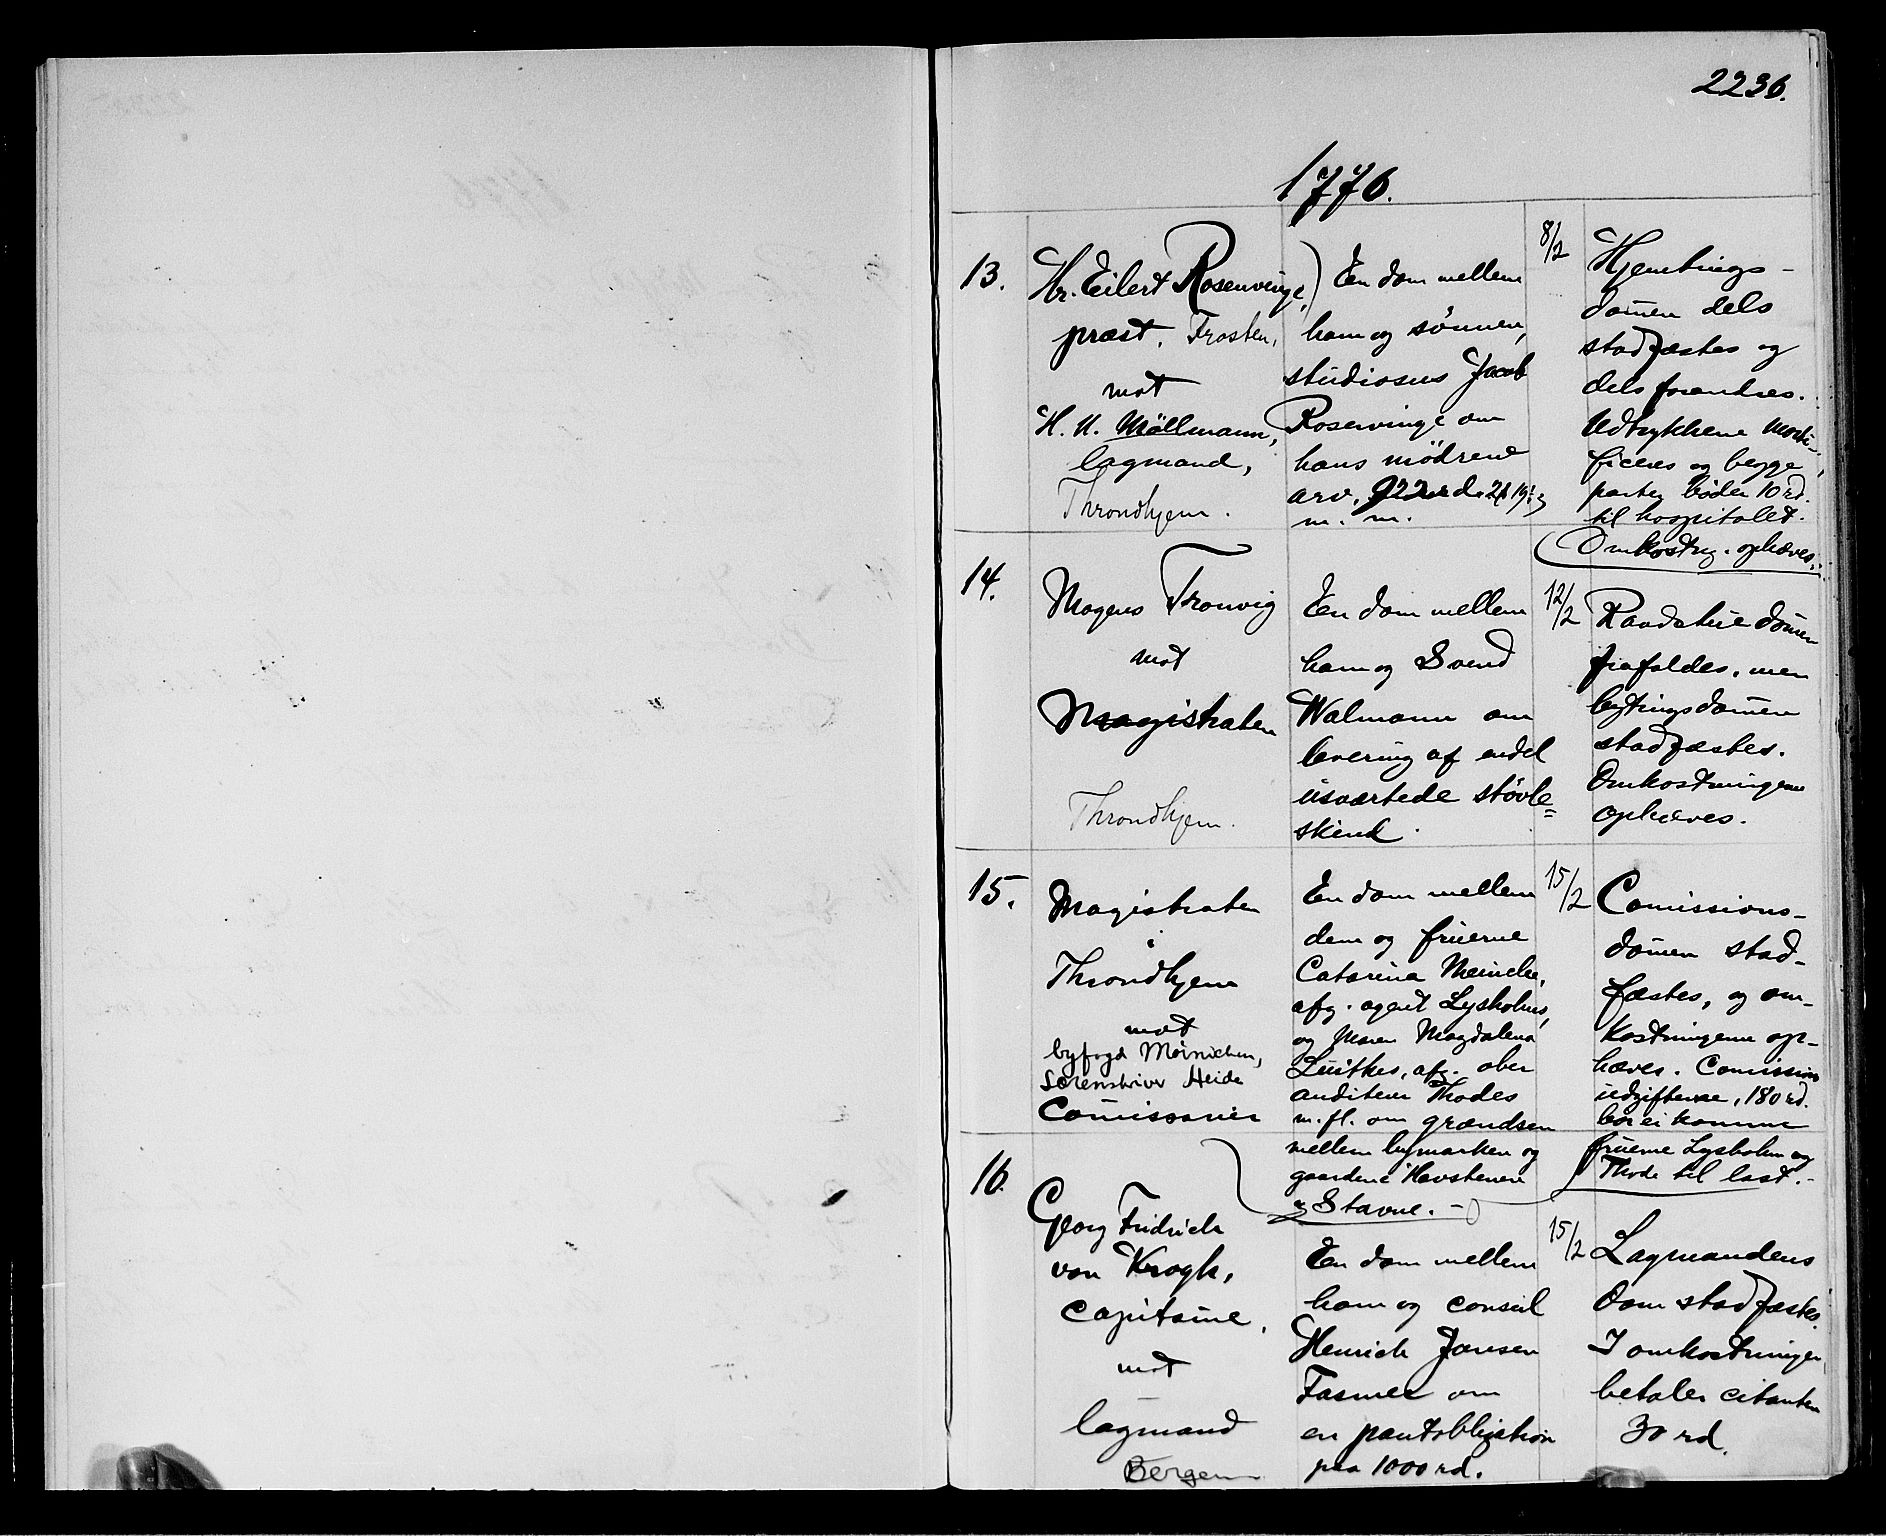 2236.
1776.
13.
Hr. Eilert Rosenvinge,
præst, Frosten,
mot
H. U. Möllmann,
lagmand,
Throndhjem.
En dom mellem
ham og sønnen,
studiosus Jacob
Rosenvinge om
hans mødrene
arv, 922 rd.
m. m.
8/2
Hjemtings-
domen dels
stadfæstes og
dels forandres.
Udtrykkene morti-
ficeres og begge
parter bøder 10 rd.
til hospitalet.
Omkostng. ophæves.
14.
Mogens Tronvig
mot
Magistraten
Throndhjem.
En dom mellem
ham og Svend
Walmann om
levering af endel
usværtede støvle=
skind.
12/2
Raadstuedomen
frafaldes, men
bytingsdomen
stadfæstes.
Omkostningene
ophæves.
15.
Magistraten
i
Throndhjem
mot
byfogd Møinichen,
sorenskriver Heide
Comissarier
En dom mellem
dem og fruerne
Catarina Meincke,
afg. agent Lysholms,
og Maren Magdalena
Lütkes, afg. ober
auditeur Thodes
m. fl. om grændsen
mellem bymarken og
gaardene Havstenen
og Stavne. -
15/2
Comissions-
domen stad-
fæstes, og om-
kostningene op-
hæves. Comission
udgifterne, 180 rd.
bør ei komme
fruerne Lysholm og
Thode til last. -
16.
Georg Fridrich
von Krogh,
capitaine,
mot
lagmand
Bergen
En dom mellem
ham og consul
Henrich Jansen
Fasmer om
en pantobligation
paa 1000 rd.
15/2
Lagmandens
dom stadfæstes.
I omkostninger
betaler citanten
30 rd.